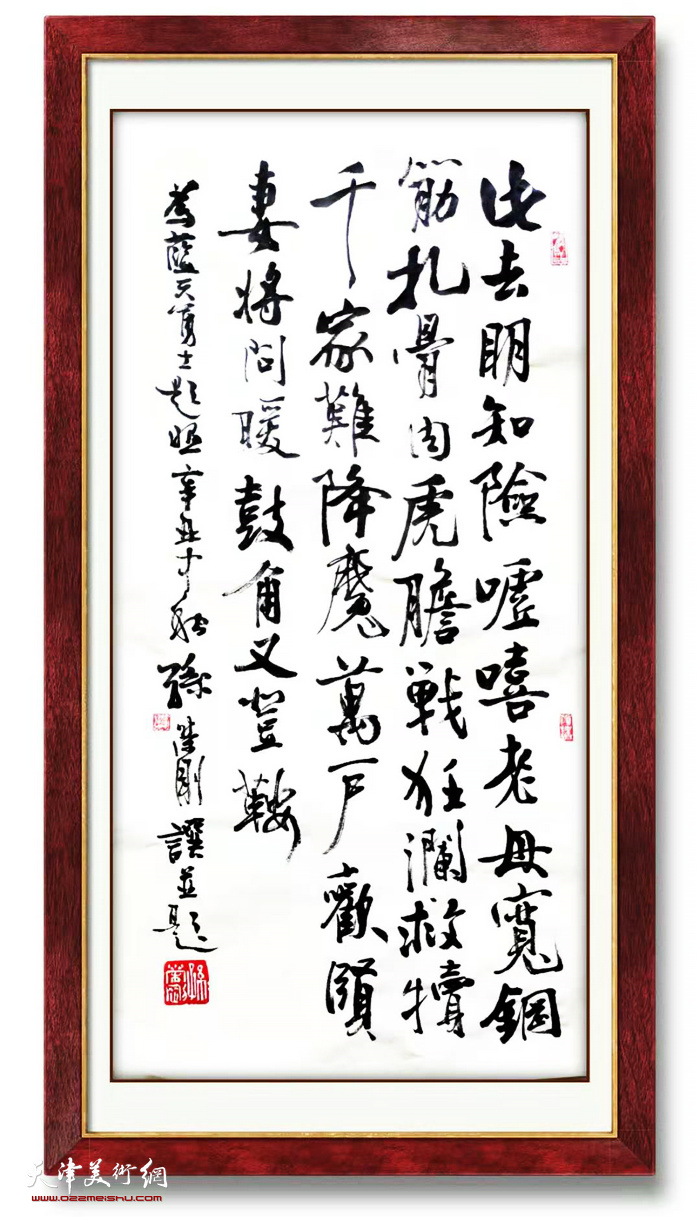 此去明知險嘘嘻老母寬鋼
筋扎骨肉虎膽戰狂瀾救犢
千家難降魔萬戶歡顔
妻將問暖鼓角又登鞍
為藍天勇士題照辛丑 孫 剛 譔並題
天津美術網
www.022meishu.com